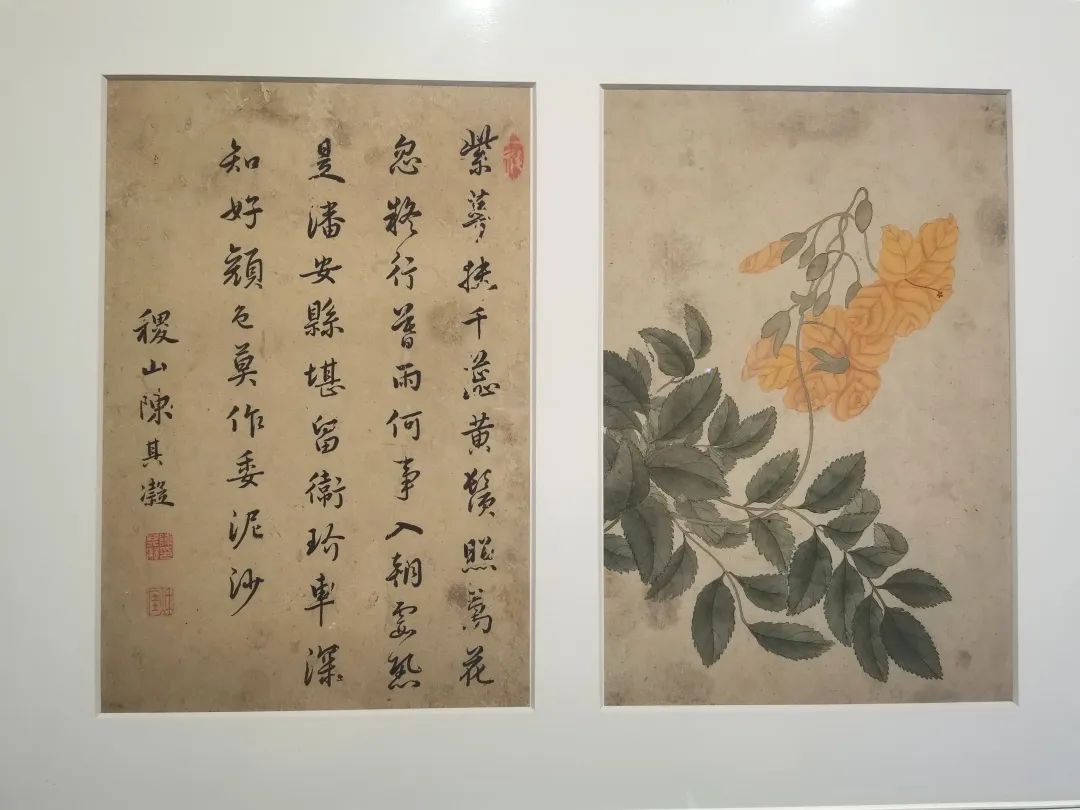 紫萼扶千蕊黄鬚照萬花
忽疑行暮雨何事入朝霞恐
是潘安縣堪留衛玠車深
知好顔色莫作委泥沙
稷山陳其凝